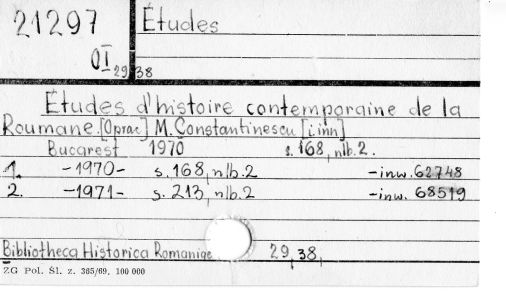 21297 Études
OI 29,38
Études d'histoire contemporaine de la
Roumane. [Oprac] M. Constantinescu [i inn]
Bucarest 1970 s. 168, nlb. 2.
1. -1970- s. 168, nlb. 2 -inw. 62748
2. -1971- s. 213, nlb. 2 -inw. 68519
Bibliotheca Historica Romaniae 29, 38,
ZG Pol. Śl. z. 365/69, 100 000